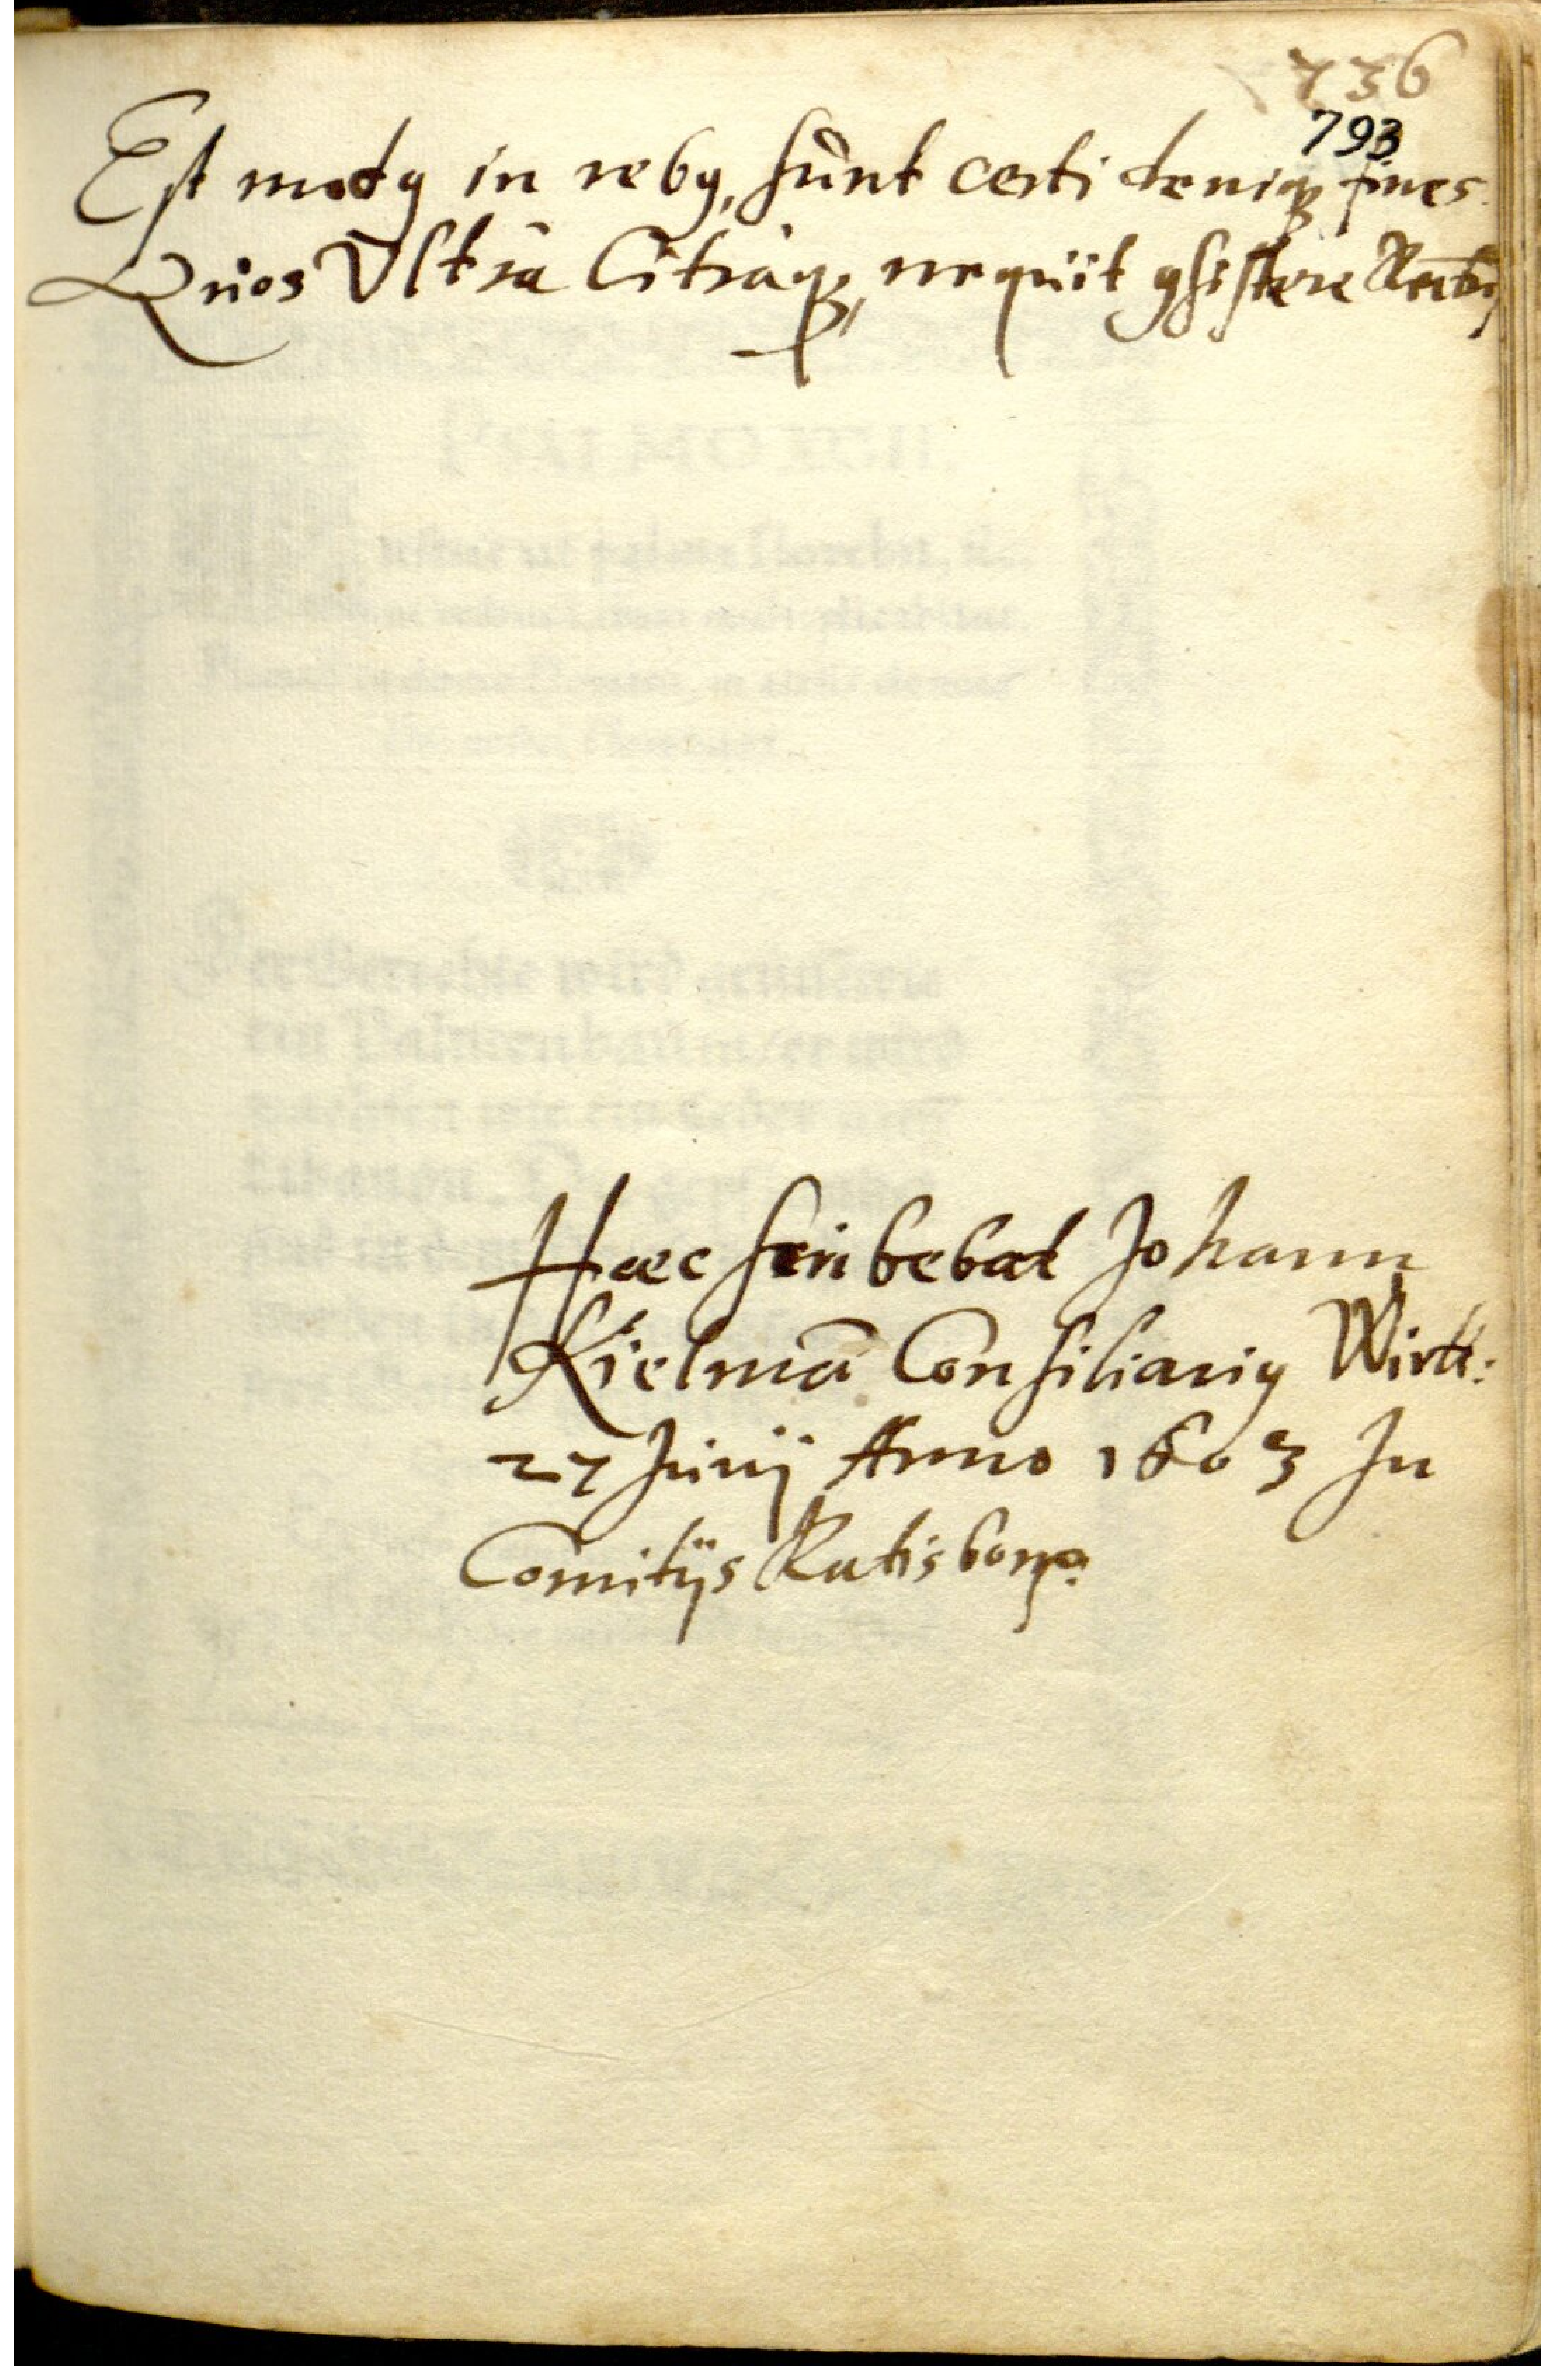 736
793
Est modꝰ in rebꝰ, sunt certi deniqꝫ fines.
Quos Vltrà Citràqꝫ, nequit ꝯsistere
Haec scribebat Johann
Kielmā Consiliariꝰ Wirtt:
27 Junij Anno 1603 In
Comitijs Ratisbonę.